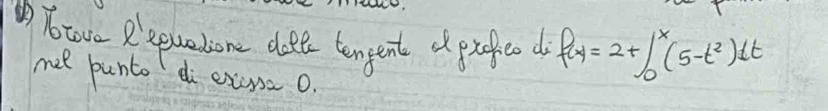 b) Trova l'equazione della tangente al grafico di f(x) = 2 + ∫₀ˣ (5 - t²) dt
nel punto di ascissa 0.